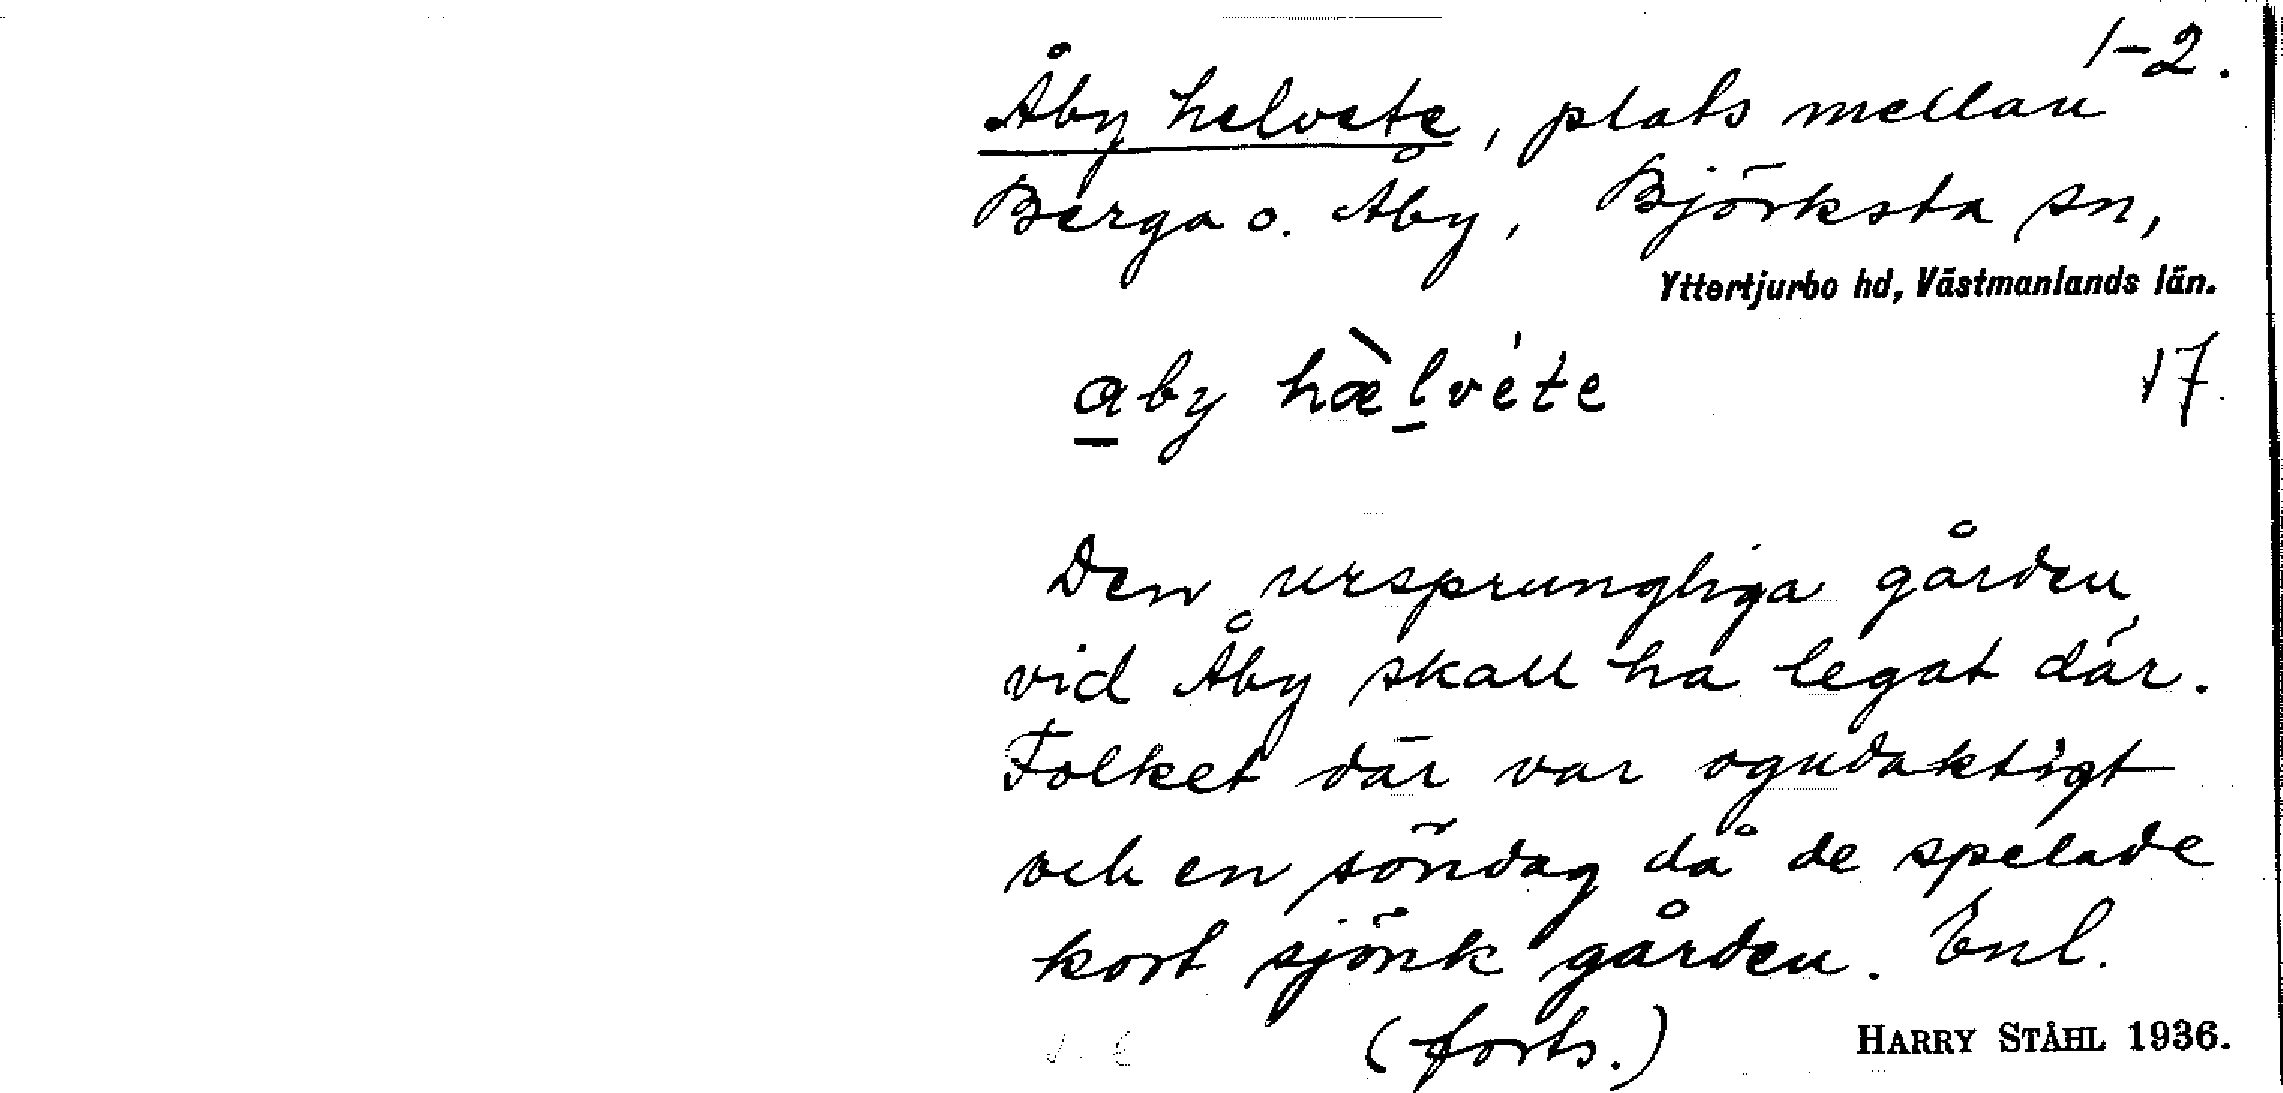 1-2.
Åby helvete, plats mellan
Berga o. Åby, Björksta sn,
Yttertjurbo hd, Västmanlands län.
aby hæ̀lvéte
17.
Den ursprungliga gården
vid Åby skall ha legat där.
Folket där var ogudaktigt
och en söndag då de spelade
kort sjönk gården. Enl.
(forts.)
HARRY STÅHL 1936.